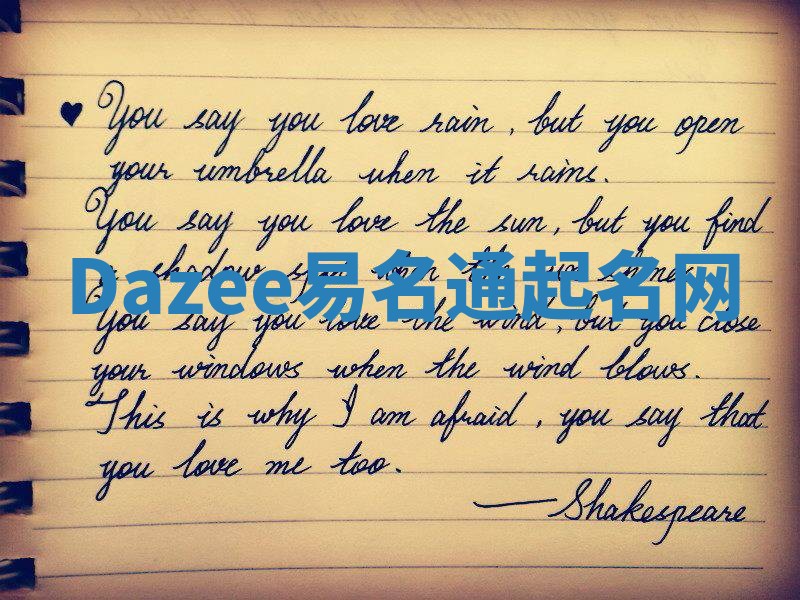 You say you love rain, but you open
your umbrella when it rains.
You say you love the sun, but you find
a shadow spot when the sun shines.
Dazee易名通起名网
You say you love the wind, but you close
your windows when the wind blows.
This is why I am afraid, you say that
you love me too.
—Shakespeare